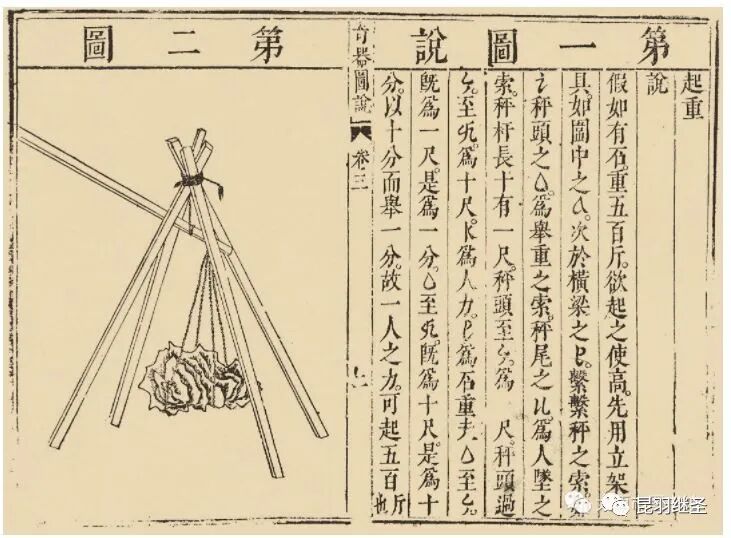 第一圖說
起重
說
假如有石。重五百斤。欲起之使高。先用立架
具。如圖中之。次於橫梁之。繫繫秤之索。如
秤頭之為舉重之索。秤尾之為人墜之
索。秤杆長十有一尺。秤頭至為 尺。秤頭過
至為十尺。為人力。為石重。夫至
既為一尺。是為一分。至既為十尺。是為十
分。以十分而舉一分。故一人之力。可起五百斤也
奇器圖說
卷三
第二圖
昆羽继圣